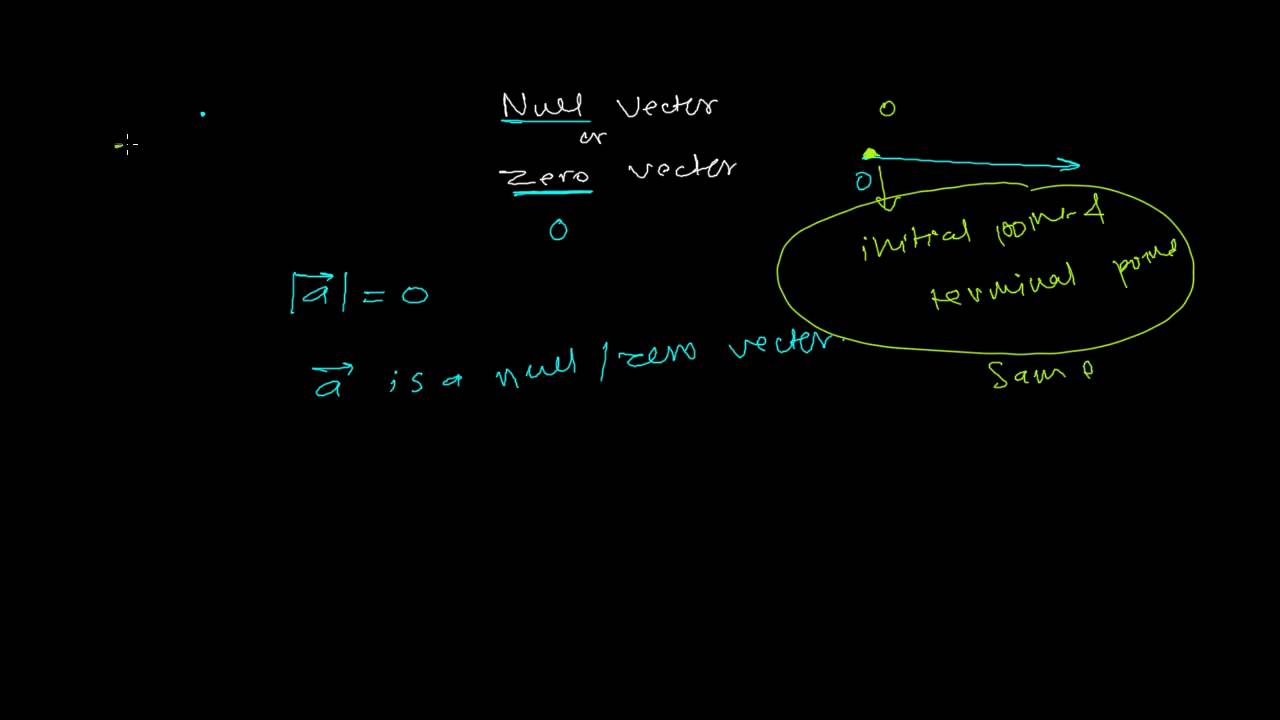 Null vector
or
zero vector
0
|a⃗| = 0
a⃗ is a null / zero vector.
0
0
initial point &
terminal point
Same